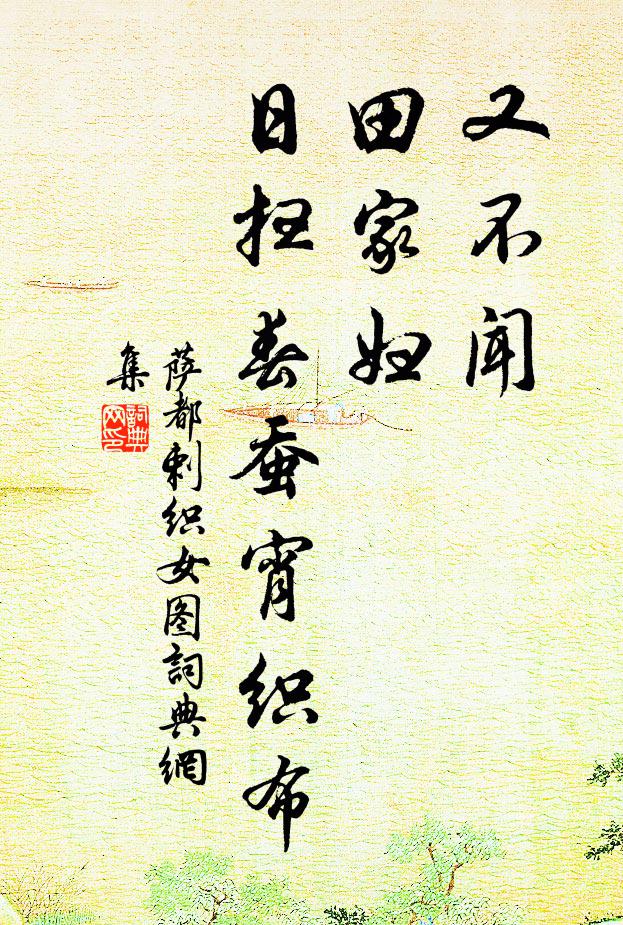 又不闻
田家妇
日扫春蚕宵织布
萨都剌织女图詞典網
集
詞典
网印